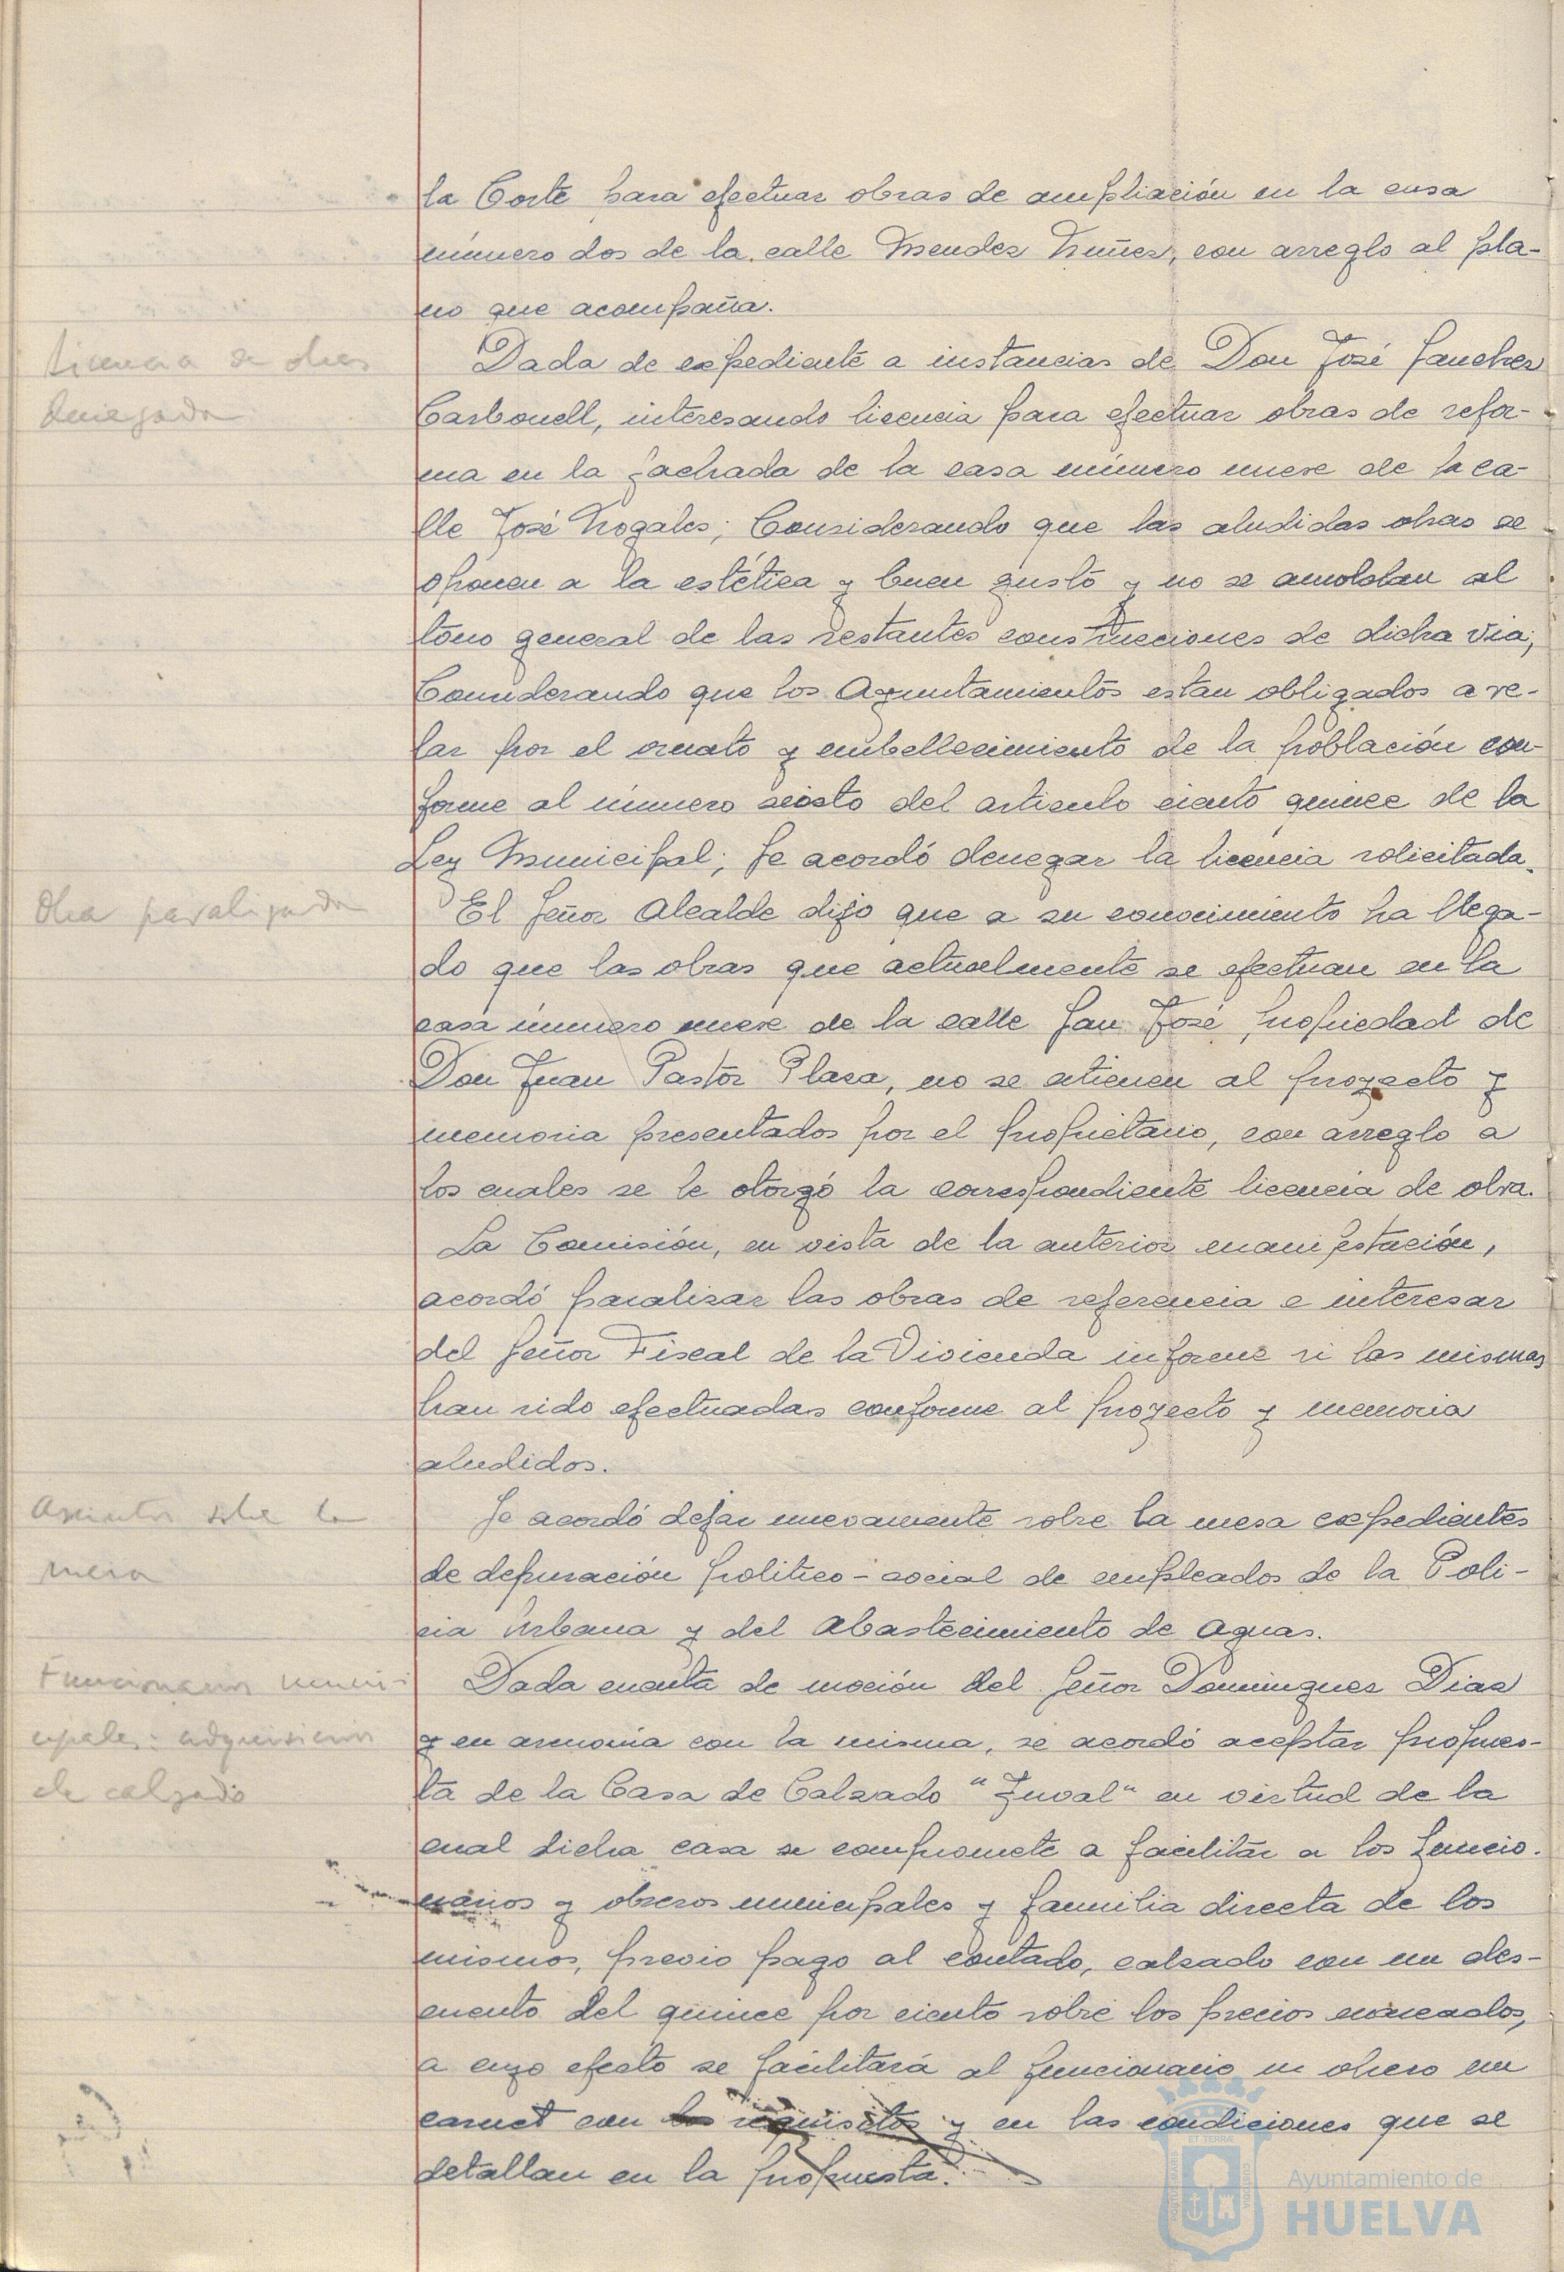 la Corte para efectuar obras de ampliación en la casa
número dos de la calle Mendez Nuñez, con arreglo al pla-
no que acompaña.
Licencia de obras
denegada
Dada de expediente a instancias de Don José Sanchez
Carbonell, interesando licencia para efectuar obras de refor-
ma en la fachada de la casa número nueve de la ca-
lle José Nogales; Considerando que las aludidas obras se
oponen a la estética y buen gusto y no se amoldan al
tono general de las restantes construcciones de dicha via;
Considerando que los Ayuntamientos estan obligados a ve-
lar por el ornato y embellecimiento de la población con-
forme al número sexto del articulo ciento quince de la
Ley Municipal; Se acordó denegar la licencia solicitada.
Obra paralizada
El Señor Alcalde dijo que a su conocimiento ha llega-
do que las obras que actualmente se efectuan en la
casa número nueve de la calle San José, propiedad de
Don Juan Pastor Plaza, no se atienen al proyecto y
memoria presentados por el propietario, con arreglo a
los cuales se le otorgó la correspondiente licencia de obra.
La Comisión, en vista de la anterior manifestación,
acordó paralizar las obras de referencia e interesar
del Señor Fiscal de la Vivienda informe si las mismas
han sido efectuadas conforme al proyecto y memoria
aludidos.
Asuntos sobre la
mesa
Se acordó dejar nuevamente sobre la mesa expedientes
de depuración politico-social de empleados de la Poli-
cia Urbana y del Abastecimiento de Aguas.
Funcionarios muni-
cipales: adquisición
de calzado
Dada cuenta de moción del Señor Dominguez Diaz
y en armonia con la misma, se acordó aceptar propues-
ta de la Casa de Calzado "Juval" en virtud de la
cual dicha casa se compromete a facilitar a los funcio-
narios y obreros municipales y familia directa de los
mismos, previo pago al contado, calzado con un des-
cuento del quince por ciento sobre los precios marcados,
a cuyo efecto se facilitará al funcionario u obrero un
carnet con los requisitos y en las condiciones que se
detallan en la propuesta.
Ayuntamiento de
HUELVA